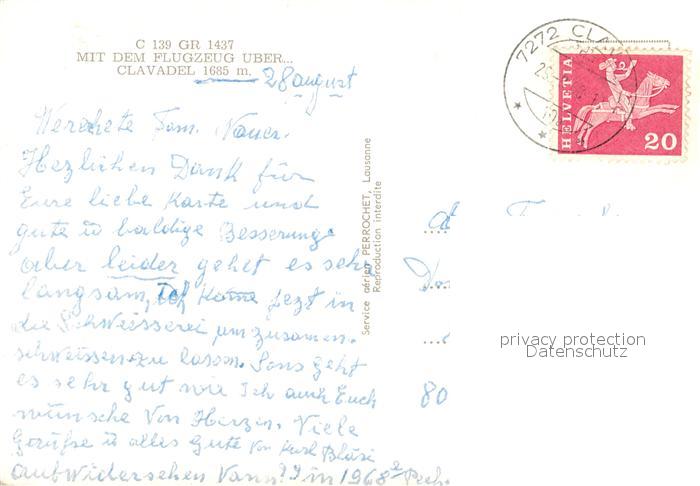 C 139 GR 1437
MIT DEM FLUGZEUG UBER...
CLAVADEL 1685 m.
28 august
Werehete Fam.
Hezlichen Dank für
Eure liebe Karte und
gute u baldige Besserung
aber leider gehet es sehr
langsam, Ich Kome jezt in
die Schweisserei um zusamen.
schweissen zu lassm. Sons geht
es sehr gut wie Ich auch Euch
wünsche Von Herzen. Viele
Grüsse u alles Gute Von Karl Bläsi
auf Widersehen Vann?? in 1968
Service aérien PERROCHET, Lausanne
Reproduction interdite
7272 CLAV
HELVETIA
20
80
privacy protection
Datenschutz